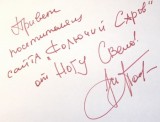 Привет
посетителям
сайта "Колючий Саров"
от Ногу Свело!